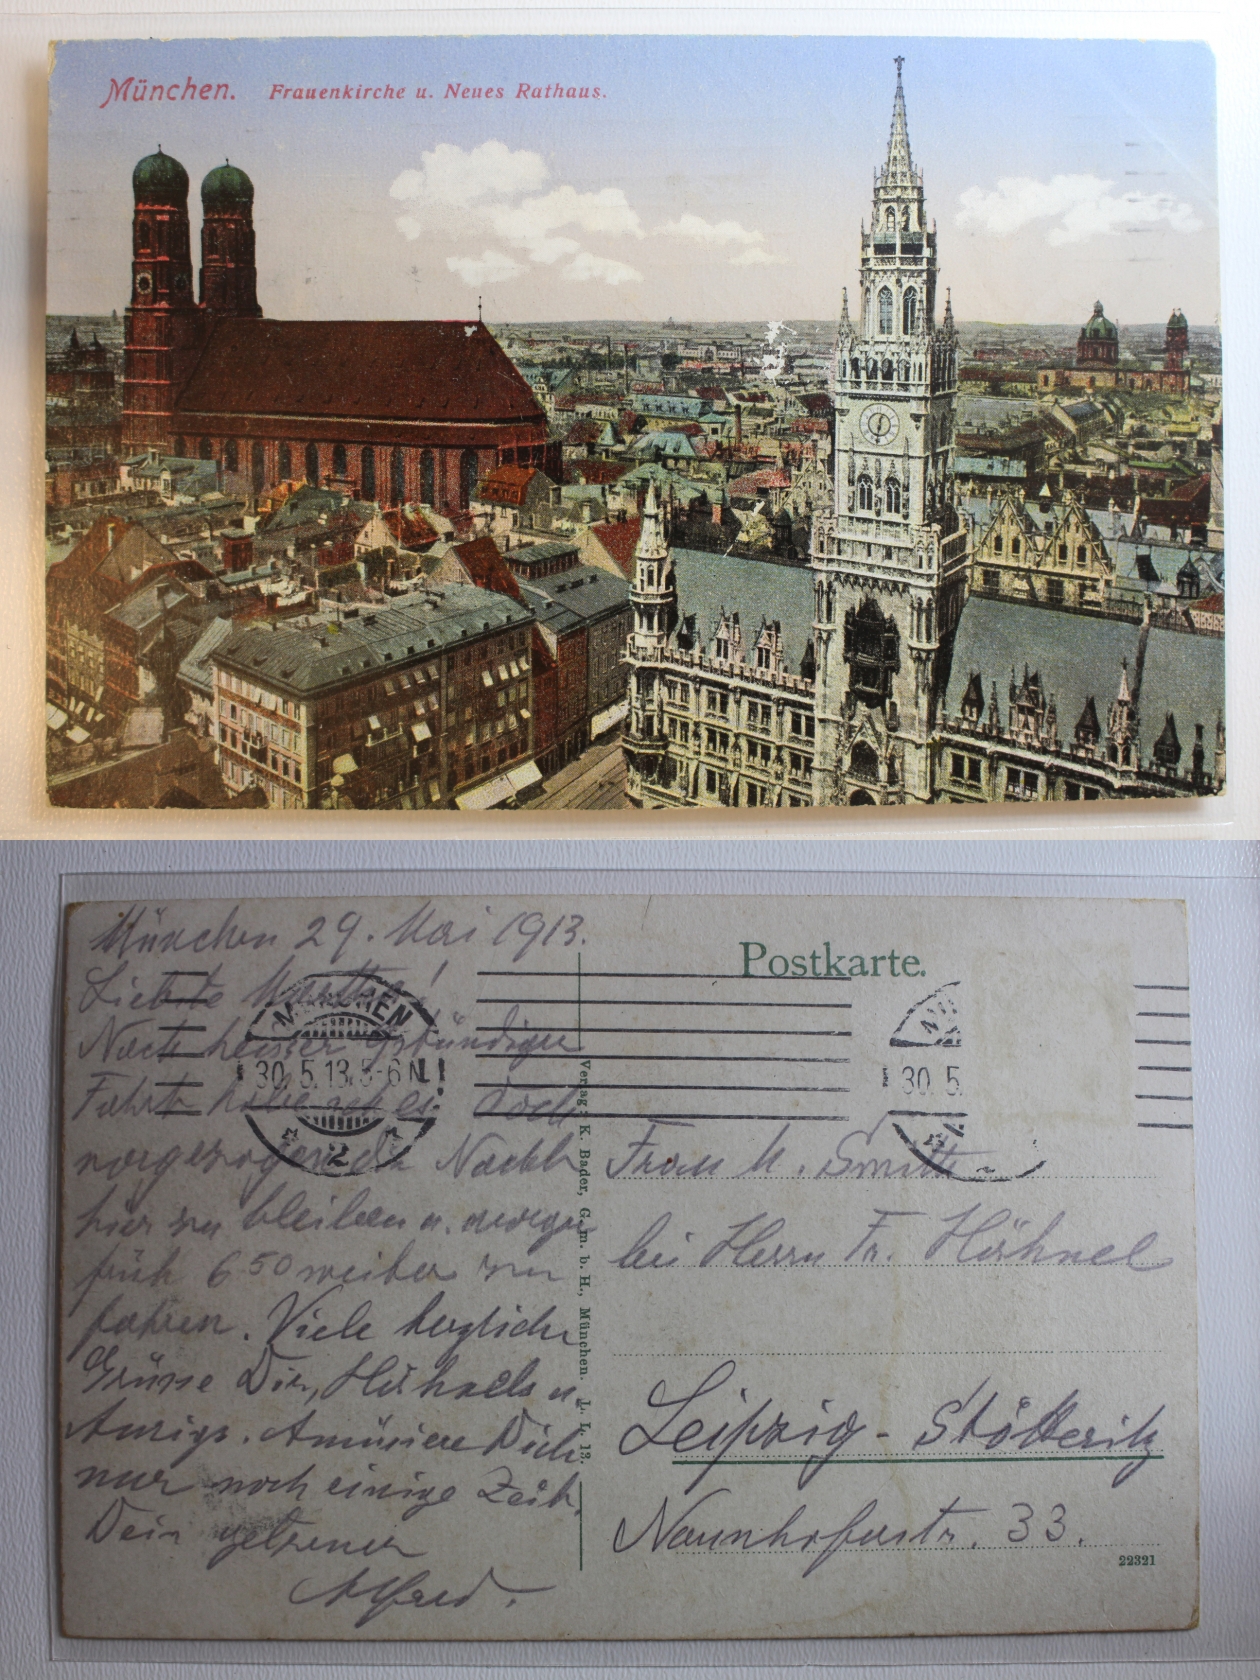 München. Frauenkirche u. Neues Rathaus.
München 29. Mai 1913.
Liebste Martha!
Nach heisser 9stündiger
Fahrt habe ich es doch
vorgezogen die Nacht
hier zu bleiben u. morgen
früh 6 50 weiter zu
fahren. Viele herzliche
Grüsse Dir, Hähnels u.
Amüsiere Dich
nur noch einige Zeit.
Dein getreuer
Alfred.
MÜNCHEN
30. 5. 13. 5-6 N.
2
Postkarte.
30. 5.
Verlag: K. Bader, G. m. b. H., München. J. L. 13.
Frau M.
bei Herrn Fr. Hähnel
Leipzig - Stötteritz
Naunhoferstr. 33.
22321